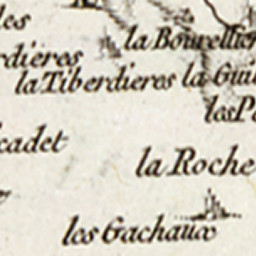 les
la Bourellier
rdieres
la Tiberdieres la Gui
les Pa
cadet
la Roche
les Gachaux